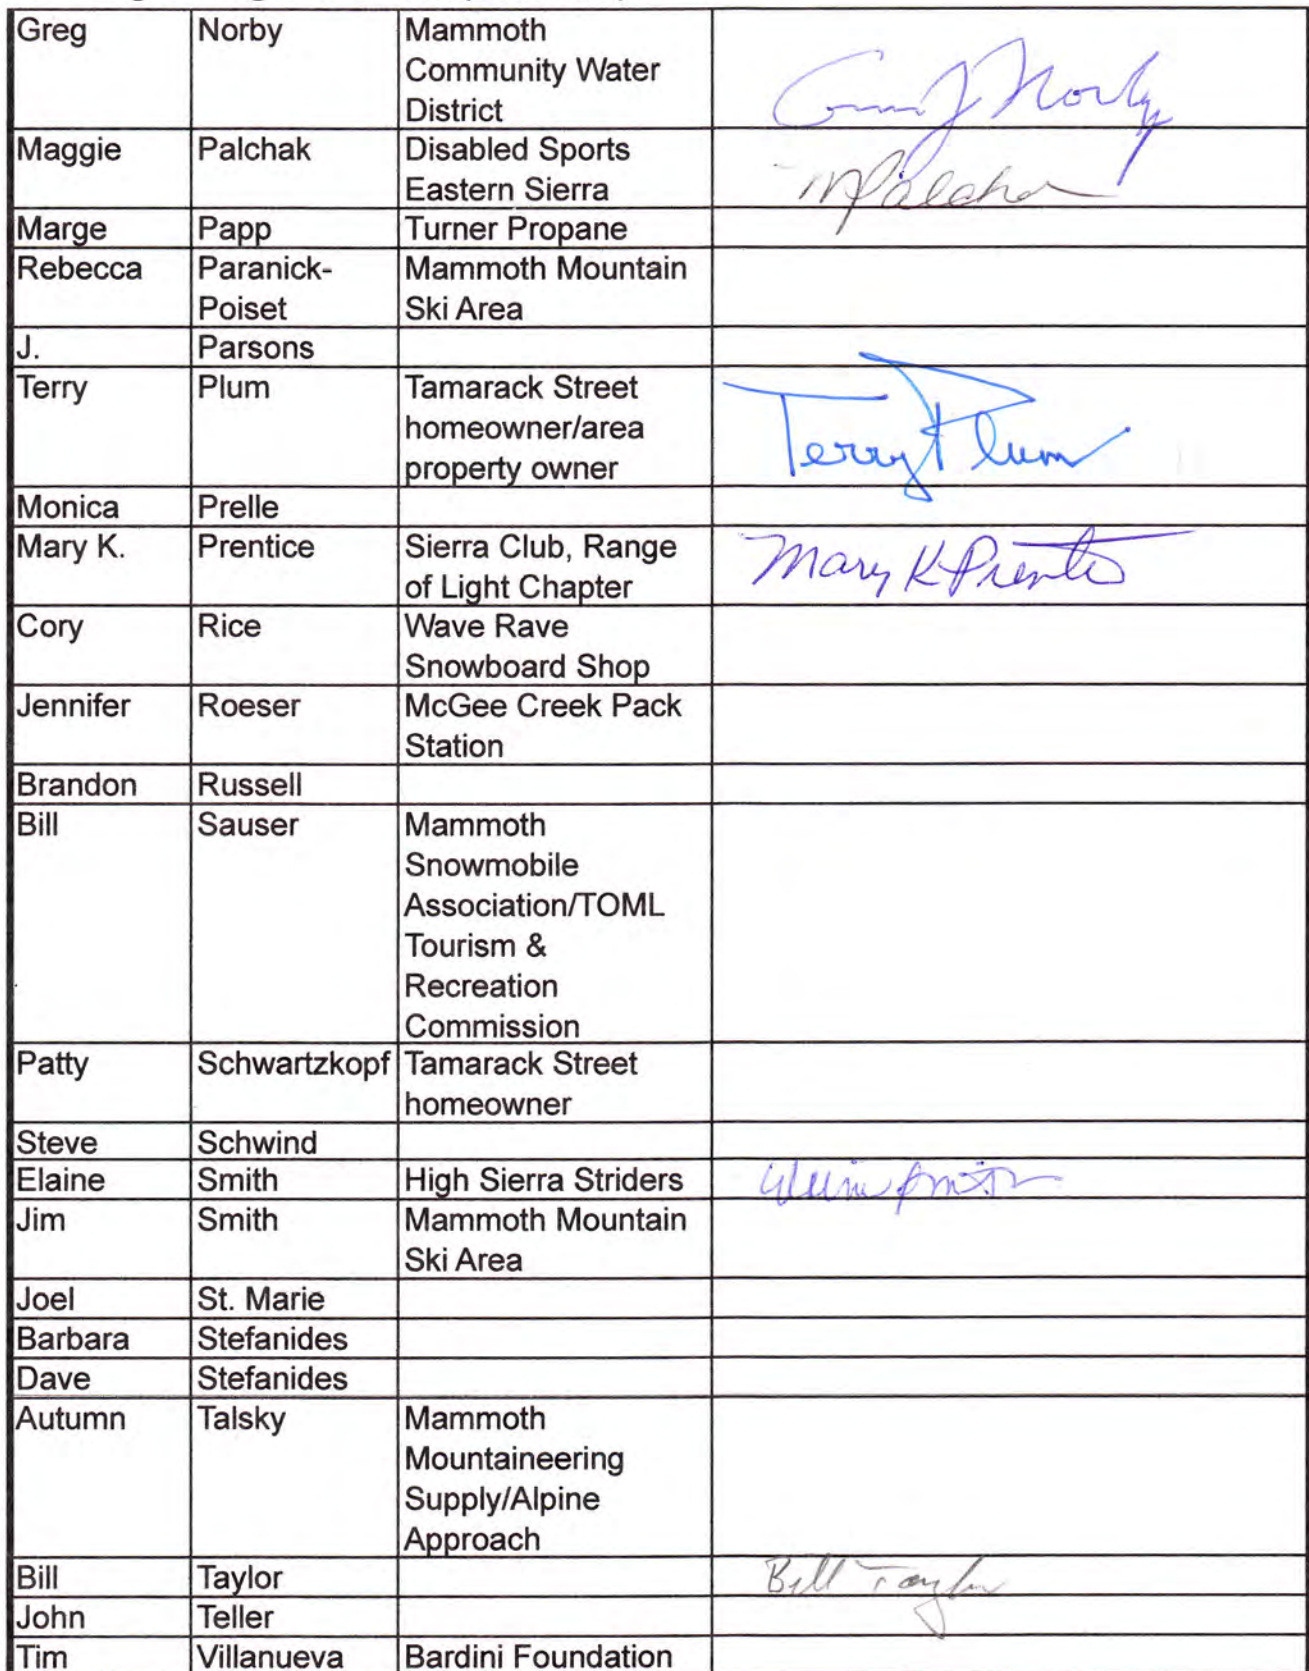 Greg Norby Mammoth
Community Water
District
Maggie Palchak Disabled Sports
Eastern Sierra
Marge Papp Turner Propane
Rebecca Paranick- Mammoth Mountain
Poiset Ski Area
J. Parsons
Terry Plum Tamarack Street
homeowner/area
property owner
Terry Plum
Monica Prelle
Mary K. Prentice Sierra Club, Range
of Light Chapter
Mary K Prentice
Cory Rice Wave Rave
Snowboard Shop
Jennifer Roeser McGee Creek Pack
Station
Brandon Russell
Bill Sauser Mammoth
Snowmobile
Association/TOML
Tourism &
Recreation
Commission
Patty Schwartzkopf Tamarack Street
homeowner
Steve Schwind
Elaine Smith High Sierra Striders
Jim Smith Mammoth Mountain
Ski Area
Joel St. Marie
Barbara Stefanides
Dave Stefanides
Autumn Talsky Mammoth
Mountaineering
Supply/Alpine
Approach
Bill Taylor Bill Taylor
John Teller
Tim Villanueva Bardini Foundation